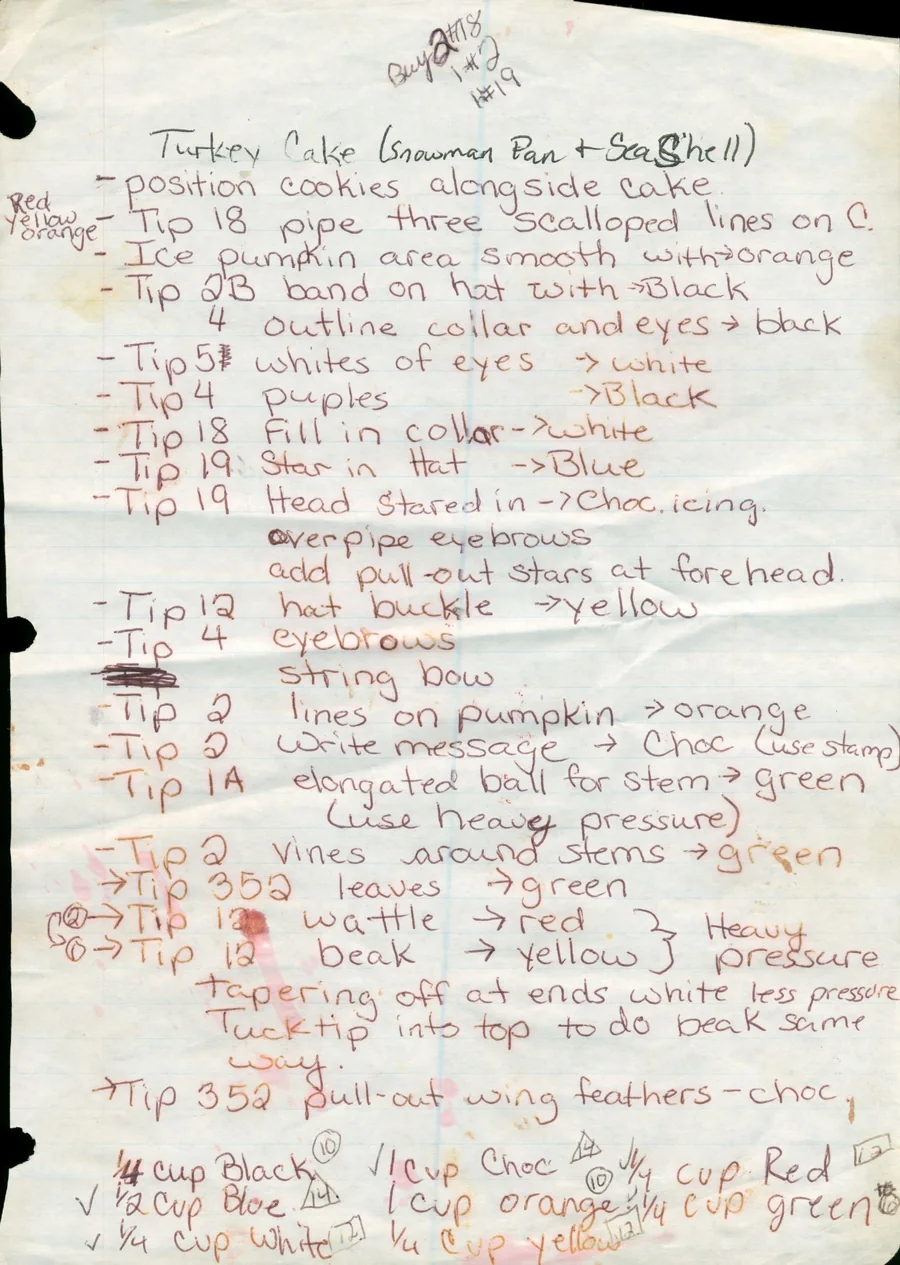 Buy 2 #18
1 #2
1 #19
Turkey Cake (Snowman Pan + SeaShell)
- position cookies alongside cake.
Red
Yellow
orange
- Tip 18 pipe three scalloped lines on C.
- Ice pumpkin area smooth with→orange
- Tip 2B band on hat with →Black
4 outline collar and eyes → black
- Tip 5 whites of eyes → white
- Tip 4 puples →Black
- Tip 18 Fill in collar →white
- Tip 19 Star in Hat →Blue
- Tip 19 Head Stared in → Choc. icing.
overpipe eyebrows
add pull-out stars at forehead.
- Tip 12 hat buckle →yellow
- Tip 4 eyebrows
string bow
- Tip 2 lines on pumpkin → orange
- Tip 2 Write message → Choc (use stamp)
- Tip 1A elongated ball for stem → green
(use heavy pressure)
- Tip 2 vines around stems → green
→ Tip 352 leaves → green
② → Tip 12 wattle → red } Heavy
① → Tip 12 beak → yellow } pressure
tapering off at ends white less pressure
Tuck tip into top to do beak same
way.
→ Tip 352 pull-out wing feathers - choc.
1/4 cup Black ⑩ √ 1 cup Choc 14 √ 1/4 cup Red 12
√ 1/2 Cup Blue 14 1 cup orange ⑩ √ 1/4 cup green
√ 1/4 cup White 12 1/4 Cup yellow 12